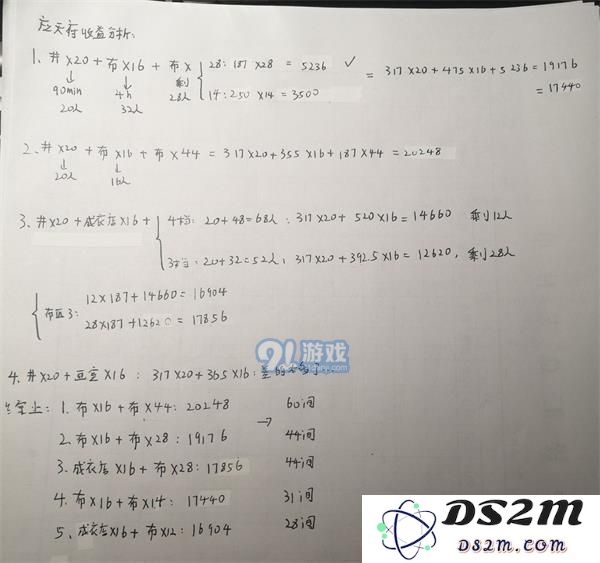 应天府收益分析:
1、井×20 + 布×16 + 布× { 28: 187×28 = 5236 ✓ = 317×20+475×16+5236=19176
↓ ↓ 剩 14: 250×14=3500 =17440
90min 4h 28人
20人 32人
2、井×20 + 布×16 + 布×44 = 317×20+355×16+187×44=20248
↓ ↓
20人 16人
3、井×20+成衣店×16+ { 4档: 20+48=68人: 317×20+520×16=14660 剩12人
3档: 20+32=52人; 317×20+392.5×16=12620, 剩28人
{ 布匹3: 12×187+14660=16904
28×187+12620=17856
91游戏
4、井×20+豆宝×16: 317×20+365×16:
1、布×16+布×44: 20248 → 60间
2、布×16+布×28: 19176 44间
3、成衣店×16+布×28: 17856 44间
4、布×16+布×14: 17440 31间
5、成衣店×16+布×12: 16904 28间
DS2M
ds2m.com